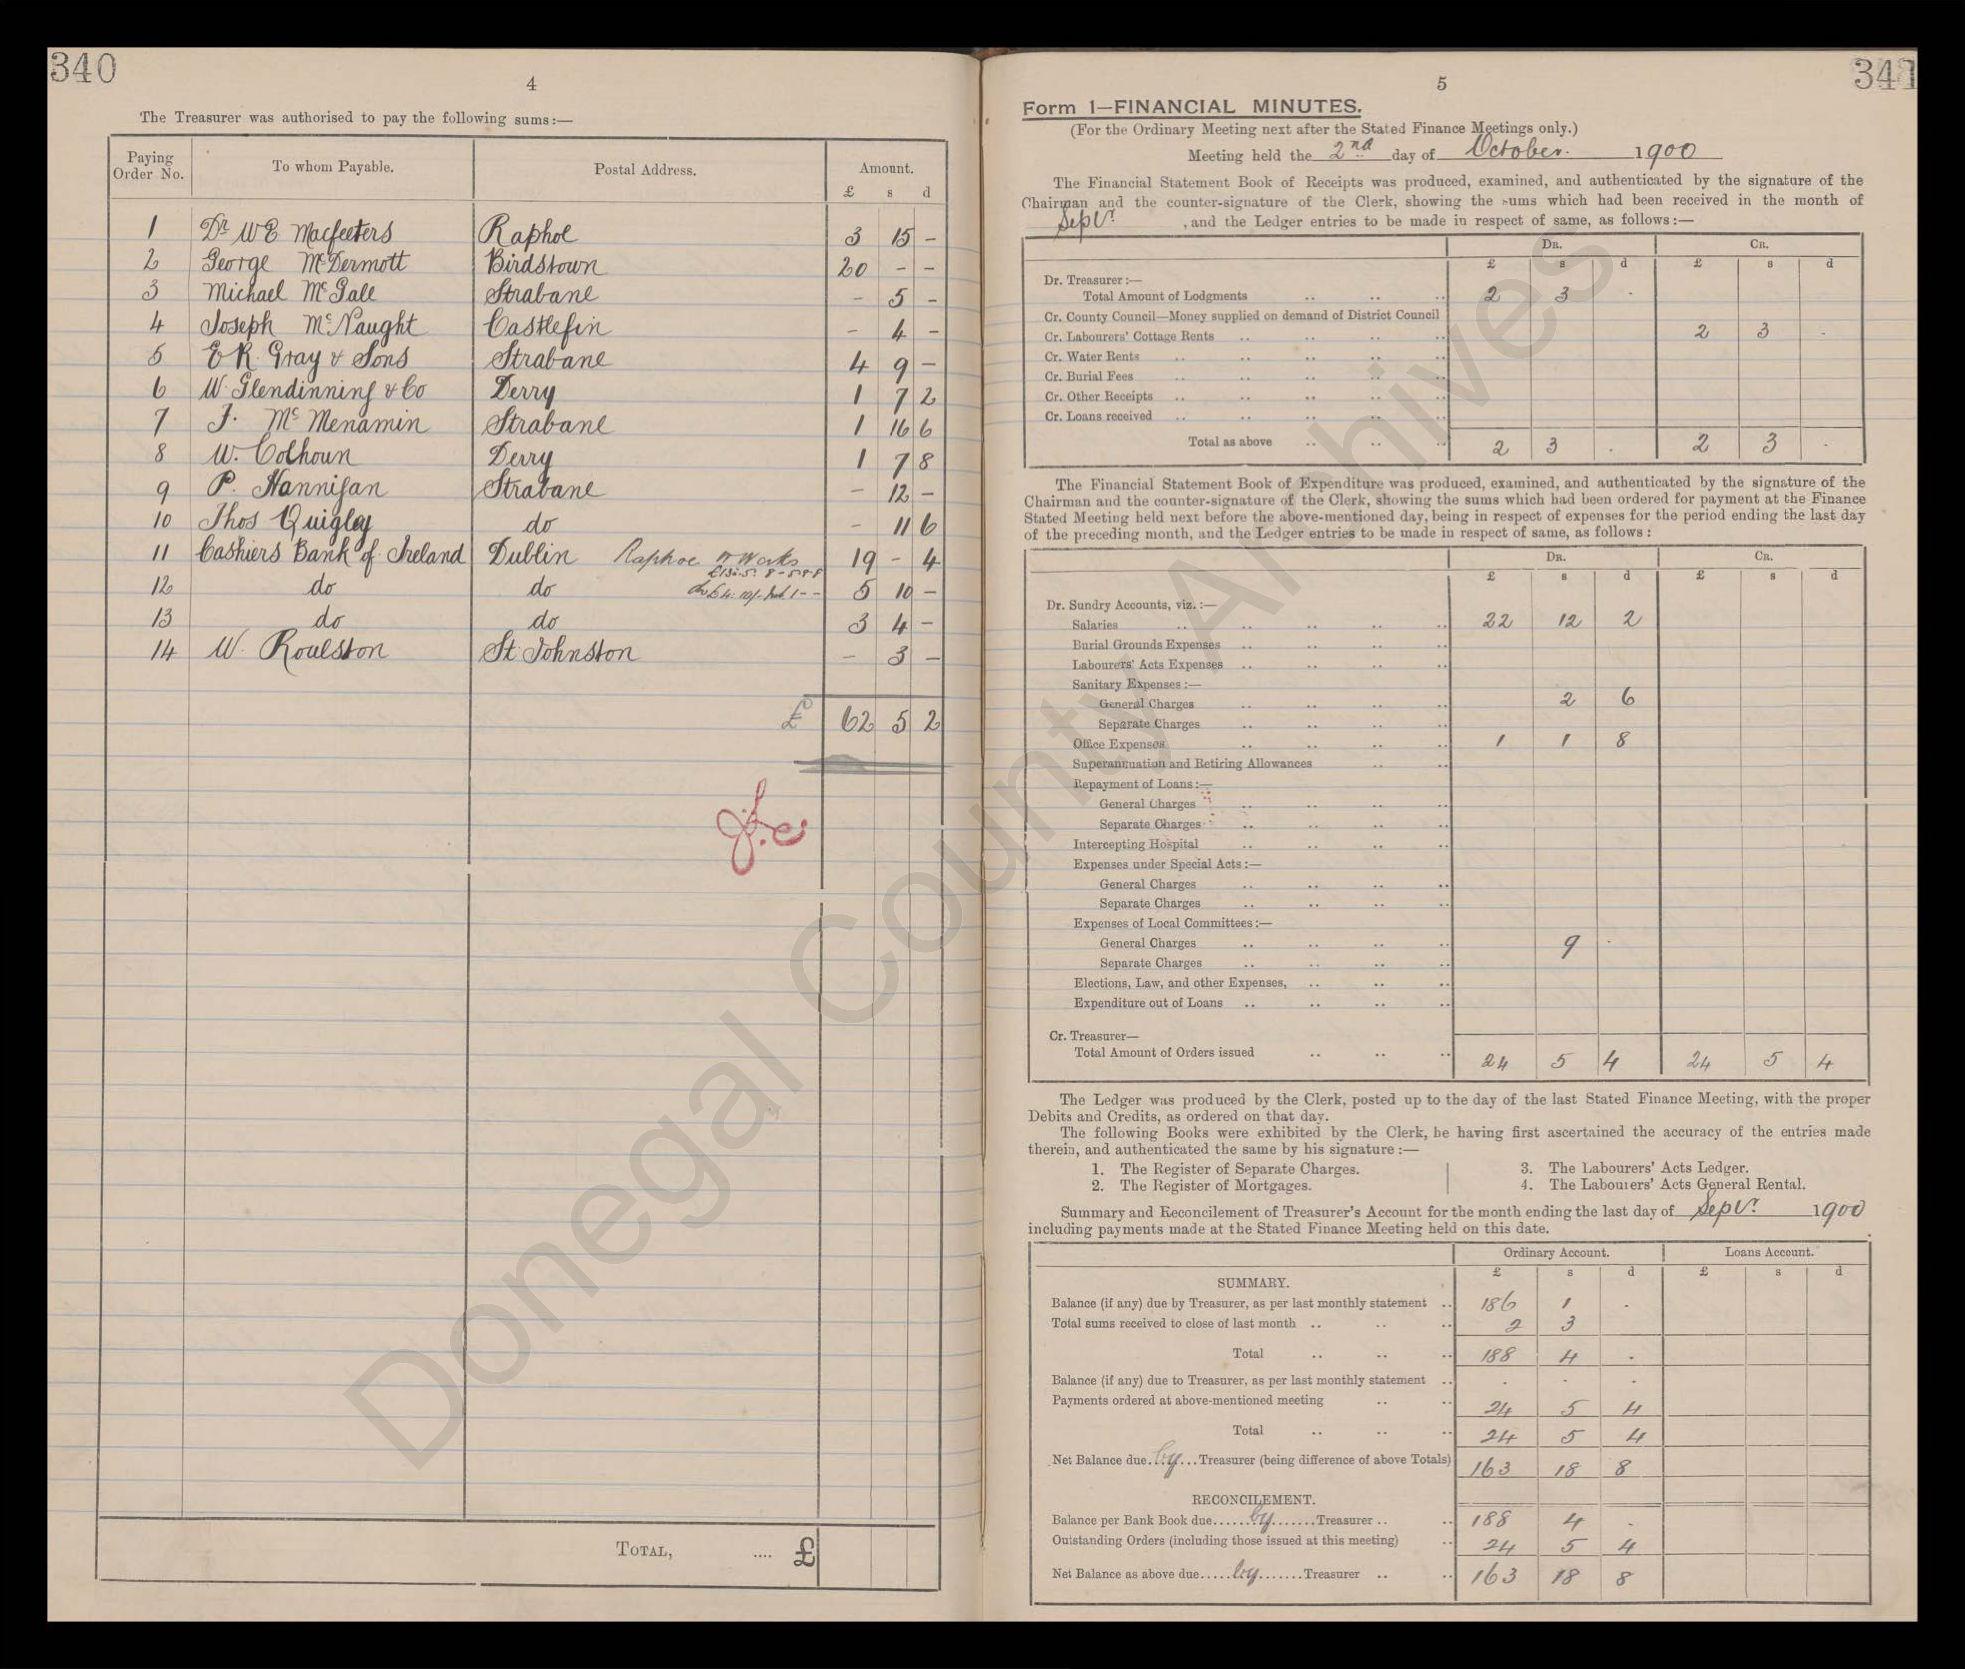 340
4
The Treasurer was authorised to pay the following sums:—
Paying Order No. To whom Payable. Postal Address. Amount.
£ s d
1 Dr W E Macfeeters Raphoe 3 15 –
2 George McDermott Birdstown 20 – –
3 Michael McGall Strabane – 5 –
4 Joseph McNaught Castlefin – 4 –
5 E R. Gray & Sons Strabane 4 9 –
6 W. Glendinning & Co Derry 1 7 2
7 J. McMenamin Strabane 1 16 6
8 W. Colhoun Derry 1 7 8
9 P. Hannigan Strabane – 12 –
10 Thos Quigley do – 11 6
11 Cashiers Bank of Ireland Dublin Raphoe W Works 19 – 4
12 do do 5 10 –
13 do do 3 4 –
14 W. Roulston St Johnston – 3 –
£ 62 5 2
Total, .... £
341
5
Form 1—FINANCIAL MINUTES.
(For the Ordinary Meeting next after the Stated Finance Meetings only.)
Meeting held the 2nd day of October. 1900
The Financial Statement Book of Receipts was produced, examined, and authenticated by the signature of the
Chairman and the counter-signature of the Clerk, showing the sums which had been received in the month of
Sepr. , and the Ledger entries to be made in respect of same, as follows:—
Dr. Cr.
£ s d £ s d
Dr. Treasurer:—
Total Amount of Lodgments .. .. .. 2 3 .
Cr. County Council—Money supplied on demand of District Council
Cr. Labourers' Cottage Rents .. .. .. .. 2 3 -
Cr. Water Rents .. .. .. .. ..
Cr. Burial Fees .. .. .. .. ..
Cr. Other Receipts .. .. .. .. ..
Cr. Loans received .. .. .. .. ..
Total as above .. .. .. 2 3 . 2 3 .
The Financial Statement Book of Expenditure was produced, examined, and authenticated by the signature of the
Chairman and the counter-signature of the Clerk, showing the sums which had been ordered for payment at the Finance
Stated Meeting held next before the above-mentioned day, being in respect of expenses for the period ending the last day
of the preceding month, and the Ledger entries to be made in respect of same, as follows:
Dr. Cr.
£ s d £ s d
Dr. Sundry Accounts, viz.:—
Salaries .. .. .. .. .. 22 12 2
Burial Grounds Expenses .. .. .. .. ..
Labourers' Acts Expenses .. .. .. .. ..
Sanitary Expenses:—
General Charges .. .. .. .. 2 6
Separate Charges .. .. .. ..
Office Expenses .. .. .. .. 1 1 8
Superannuation and Retiring Allowances .. ..
Repayment of Loans:—
General Charges .. .. .. ..
Separate Charges .. .. .. ..
Intercepting Hospital .. .. .. ..
Expenses under Special Acts:—
General Charges .. .. .. ..
Separate Charges .. .. .. ..
Expenses of Local Committees:—
General Charges .. .. .. .. 9 .
Separate Charges .. .. .. ..
Elections, Law, and other Expenses, .. .. ..
Expenditure out of Loans .. .. .. ..
Cr. Treasurer—
Total Amount of Orders issued .. .. .. 24 5 4 24 5 4
The Ledger was produced by the Clerk, posted up to the day of the last Stated Finance Meeting, with the proper
Debits and Credits, as ordered on that day.
The following Books were exhibited by the Clerk, he having first ascertained the accuracy of the entries made
therein, and authenticated the same by his signature:—
1. The Register of Separate Charges. 3. The Labourers' Acts Ledger.
2. The Register of Mortgages. 4. The Labourers' Acts General Rental.
Summary and Reconcilement of Treasurer's Account for the month ending the last day of Sepr. 1900
including payments made at the Stated Finance Meeting held on this date.
Ordinary Account. Loans Account.
£ s d £ s d
SUMMARY.
Balance (if any) due by Treasurer, as per last monthly statement .. 186 1 .
Total sums received to close of last month .. .. .. 2 3
Total .. .. .. 188 4 .
Balance (if any) due to Treasurer, as per last monthly statement .. . . .
Payments ordered at above-mentioned meeting .. .. 24 5 4
Total .. .. .. 24 5 4
Net Balance due by Treasurer (being difference of above Totals) 163 18 8
RECONCILEMENT.
Balance per Bank Book due by Treasurer .. .. 188 4 .
Outstanding Orders (including those issued at this meeting) .. 24 5 4
Net Balance as above due by Treasurer .. .. 163 18 8
Donegal County Archives